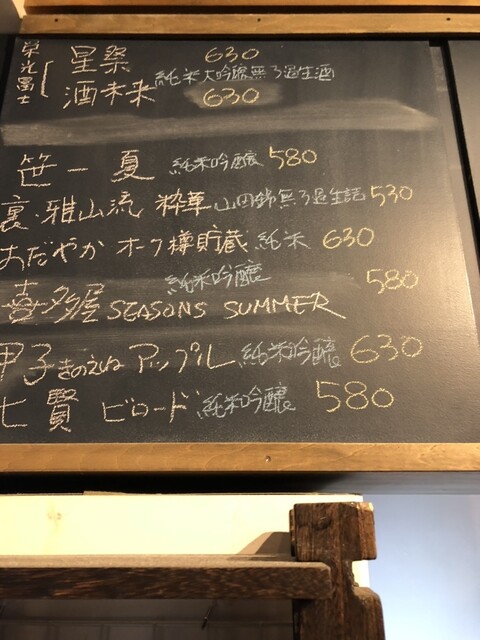 栄光冨士
星祭 630
純米大吟醸無ろ過生酒
酒未来 630
笹一 夏 純米吟醸 580
裏・雅山流 粋華 山田錦無ろ過生詰 530
おだやか オーク樽貯蔵 純米 630
純米吟醸 580
喜多屋 SEASONS SUMMER
甲子きのえね アップル 純米吟醸 630
七賢 ビロード 純米吟醸 580